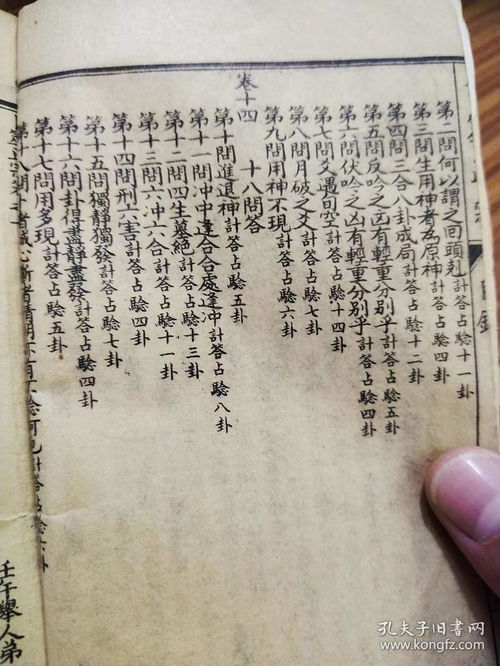 第二問何以謂之回頭尅計答占驗十一卦
第三問生用神者為原神計答占驗四卦
第四問三合八卦成局計答占驗十二卦
第五問反吟之凶有輕重分別乎計答占驗五卦
第六問伏吟之凶有輕重分別乎計答占驗四卦
第七問爻遇旬空計答占驗十四卦
第八問月破之爻計答占驗七卦
第九問用神不現計答占驗六卦
卷十四
十八問答
第十問進退神計答占驗五卦
第十一問冲中逢合合處逢冲計答占驗八卦
第十二問四生墓絶計答占驗十三卦
第十三問六冲六合計答占驗十一卦
第十四問刑六害計答占驗四卦
第十五問獨靜獨發計答占驗七卦
第十六問卦得盡靜盡發計答占驗四卦
第十七問用多現計答占驗五卦
第十八問卜者誠心斷者精明亦有不驗何也計答占驗六卦
壬午舉人弟
孔夫子旧书网
www.kongfz.com